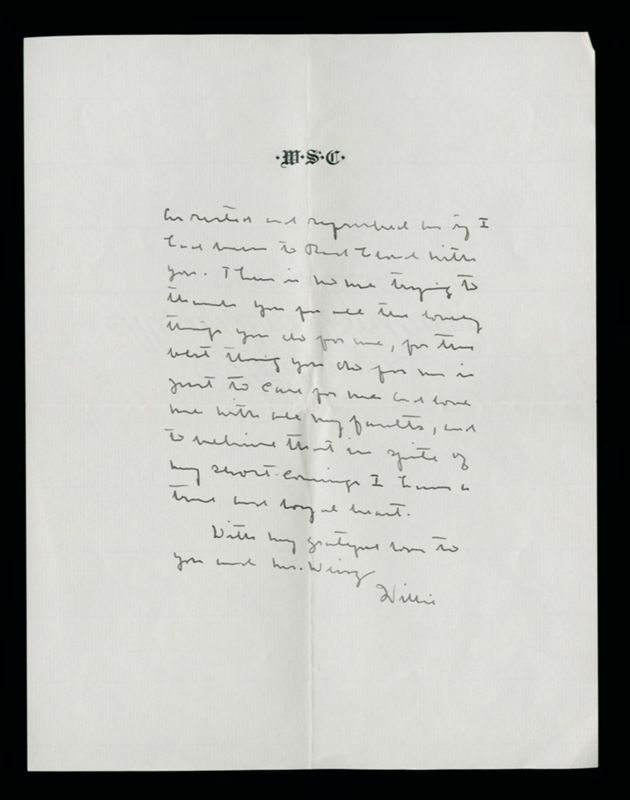 ·W·S·C·
as rested and refreshed as if I
had been to Red Cloud with
you. There is no use trying to
thank you for all the lovely
things you do for me, for the
best thing you do for me is
just to care for me and love
me with all my faults, and
to believe that in spite of
my short-comings I have a
true and loyal heart.
With my grateful love to
you and Mrs. Wing
Willie